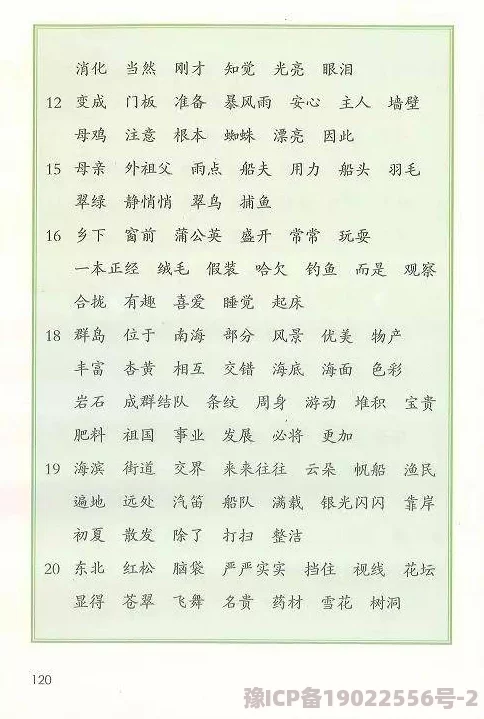 消化 当然 刚才 知觉 光亮 眼泪
12 变成 门板 准备 暴风雨 安心 主人 墙壁
母鸡 注意 根本 蜘蛛 漂亮 因此
15 母亲 外祖父 雨点 船夫 用力 船头 羽毛
翠绿 静悄悄 翠鸟 捕鱼
16 乡下 窗前 蒲公英 盛开 常常 玩耍
一本正经 绒毛 假装 哈欠 钓鱼 而是 观察
合拢 有趣 喜爱 睡觉 起床
18 群岛 位于 南海 部分 风景 优美 物产
丰富 杏黄 相互 交错 海底 海面 色彩
岩石 成群结队 条纹 周身 游动 堆积 宝贵
肥料 祖国 事业 发展 必将 更加
19 海滨 街道 交界 来来往往 云朵 帆船 渔民
遍地 远处 汽笛 船队 满载 银光闪闪 靠岸
初夏 散发 除了 打扫 整洁
20 东北 红松 脑袋 严严实实 挡住 视线 花坛
显得 苍翠 飞舞 名贵 药材 雪花 树洞
120
豫ICP备19022556号-2